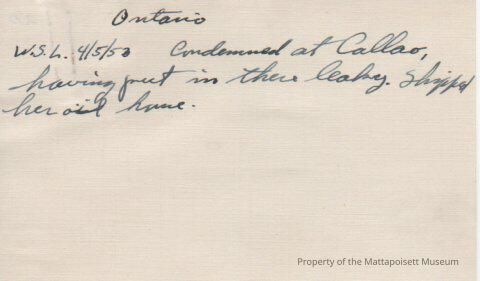 Ontario
W.S.L. 4/5/53 Condemned at Callao,
having put in there leaky. Shipped
her oil home.
Property of the Mattapoisett Museum